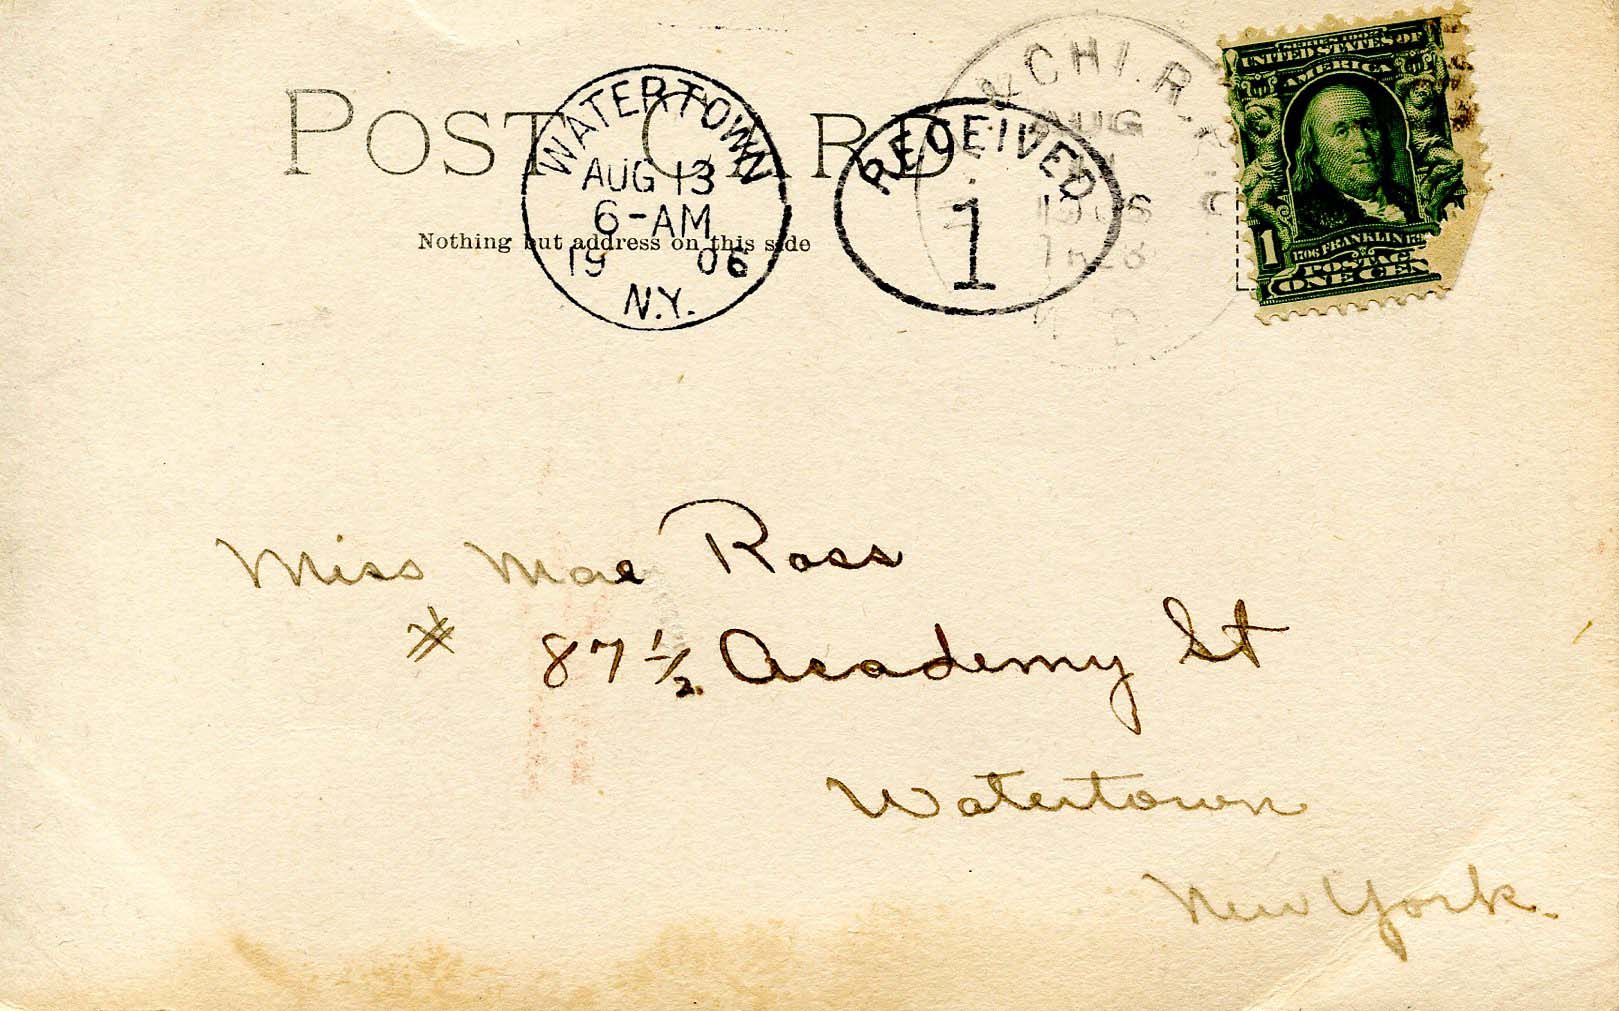 POST CARD
Nothing but address on this side
WATERTOWN
AUG 13
6-AM
19 06
N.Y.
RECEIVED
1
& CHI. R.
AUG
1906
SERIES 1902
UNITED STATES OF
AMERICA
1
1706 FRANKLIN 179
POSTAG
ONE CEN
Miss Mae Ross
# 87 1/2 Academy St
Watertown
New York.